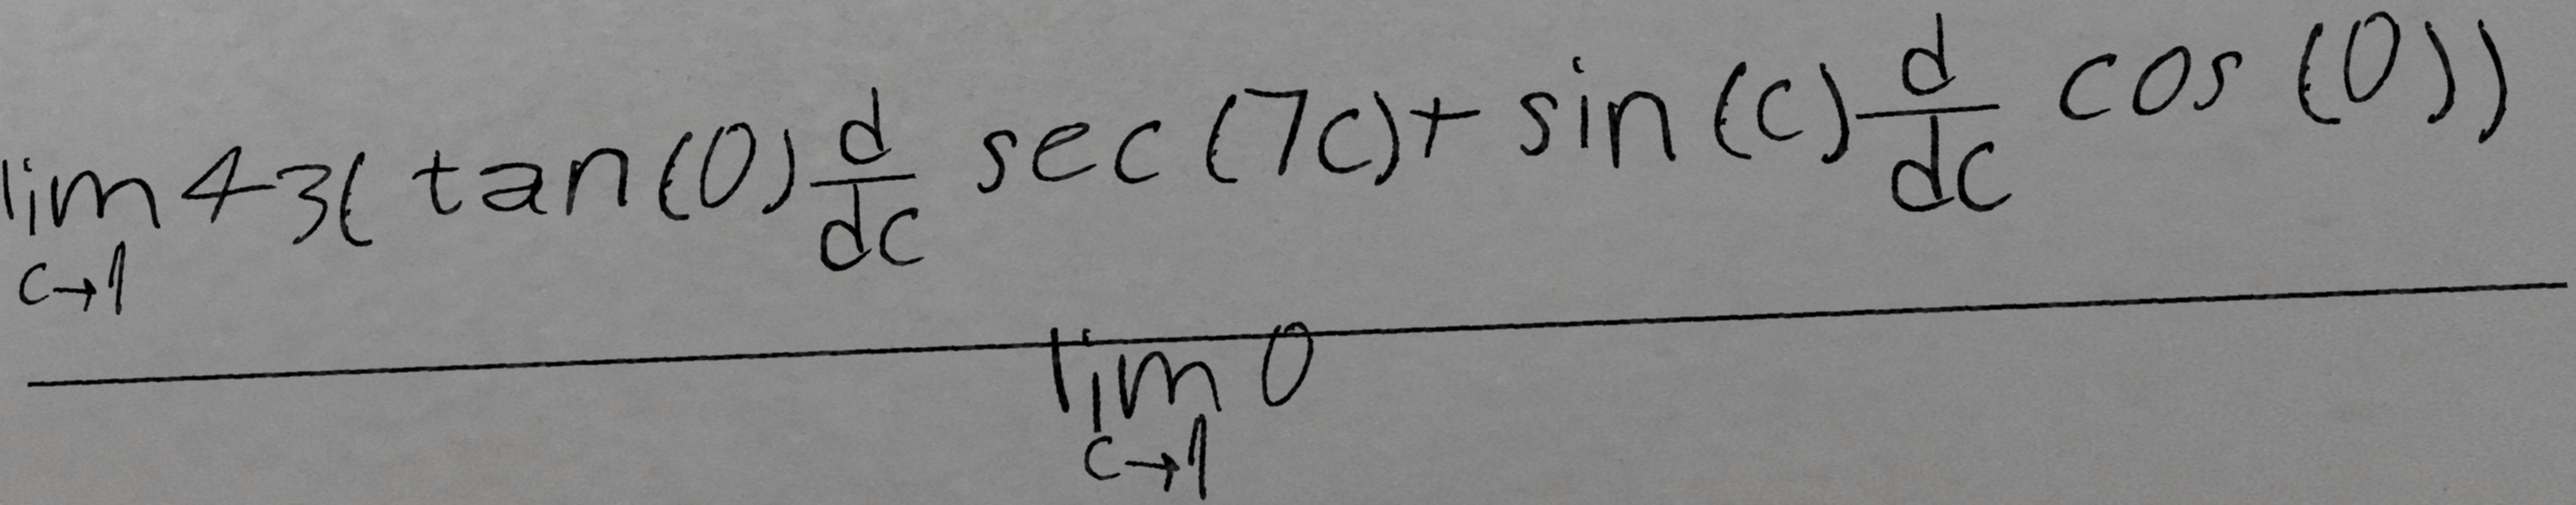 \frac{\lim_{c \to 1} 43(\tan(0) \frac{d}{dc} \sec(7c) + \sin(c) \frac{d}{dc} \cos(0))}{\lim_{c \to 1} 0}